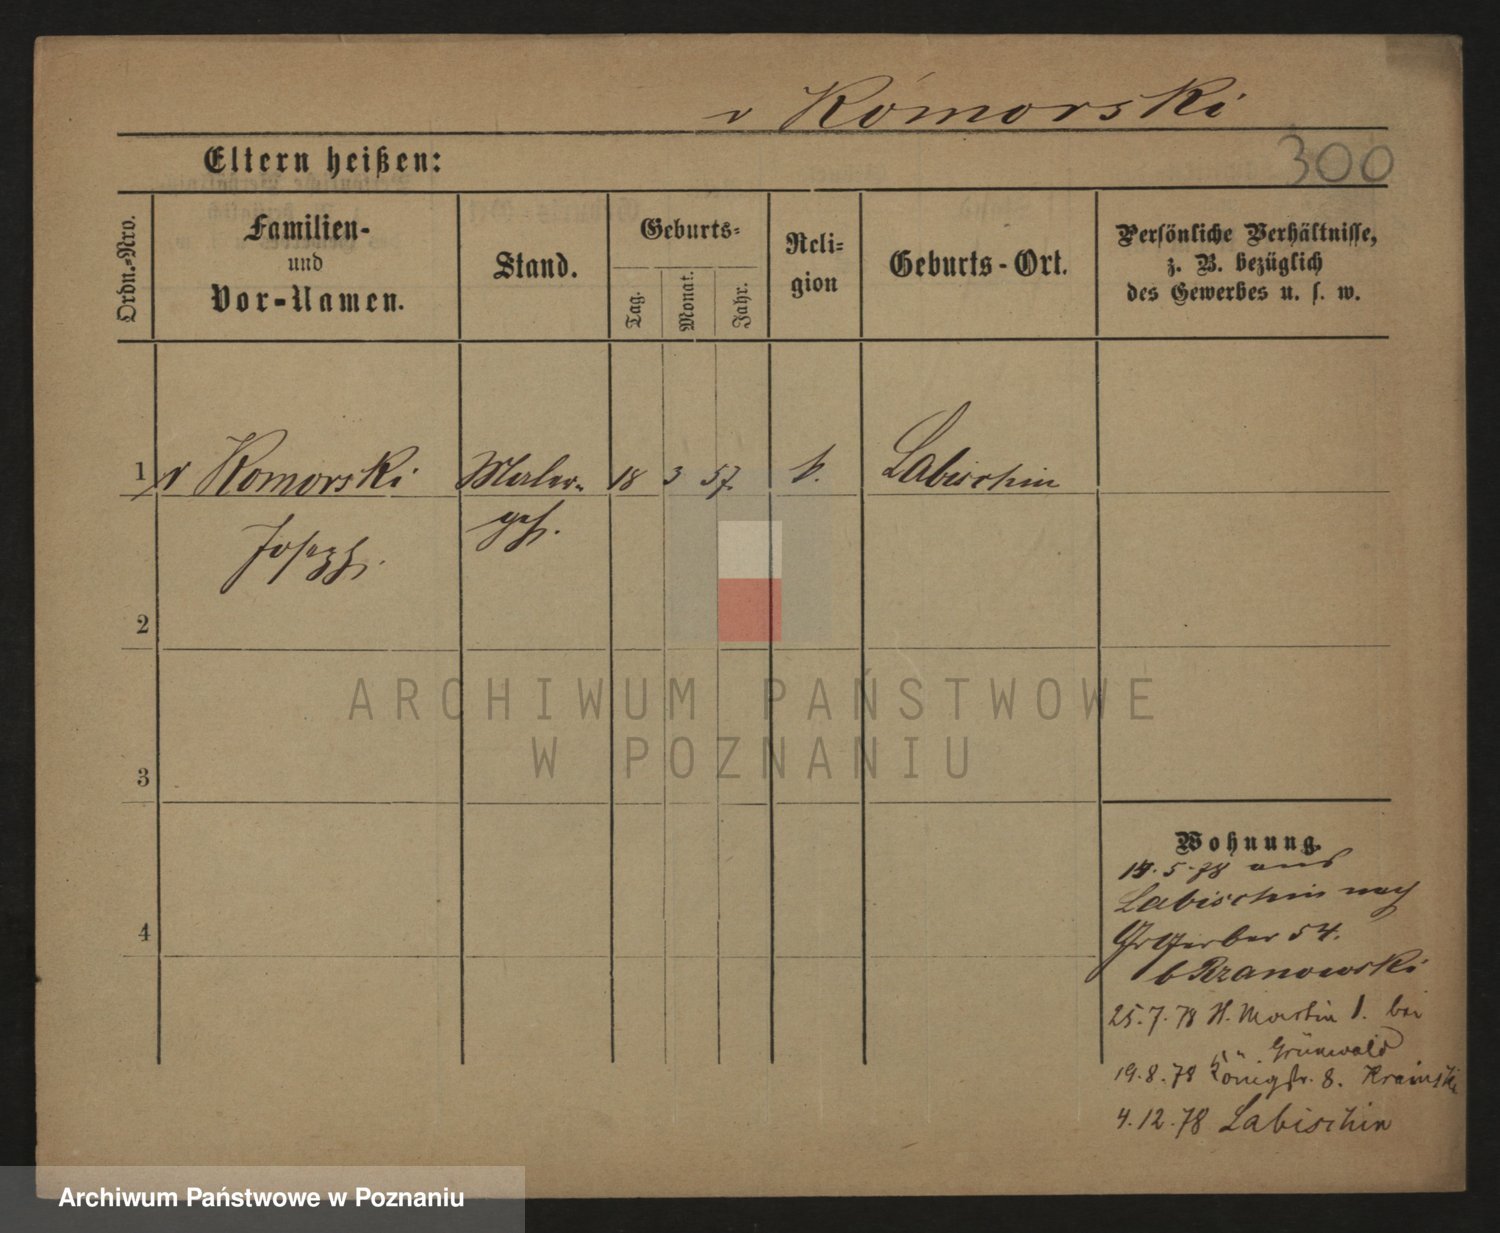 v Komorski
300
Eltern heißen:
Ordn.-Nro.
Familien-
und
Vor-Namen.
Stand.
Geburts-
Tag.
Monat.
Jahr.
Reli-
gion
Geburts-Ort.
Persönliche Verhältnisse,
z. B. bezüglich
des Gewerbes u. s. w.
1 v Komorski Maler- 18 3 57. k. Labischin
Joseph. geh.
2
3
4
ARCHIWUM PAŃSTWOWE
W POZNANIU
Wohnung.
5.78 aus
Labischin nach
Gr Gerber 54.
b Rzanowski
25.7.78 St. Martin 1. bei
Grünwald
19.8.78 Königstr. 8. Krainski
4.12.78 Labischin
Archiwum Państwowe w Poznaniu